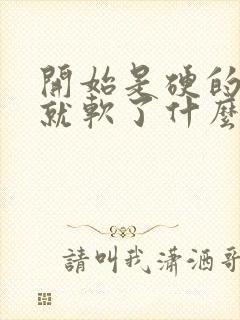 開始是硬的
就軟了什麼
請叫我瀟洒哥